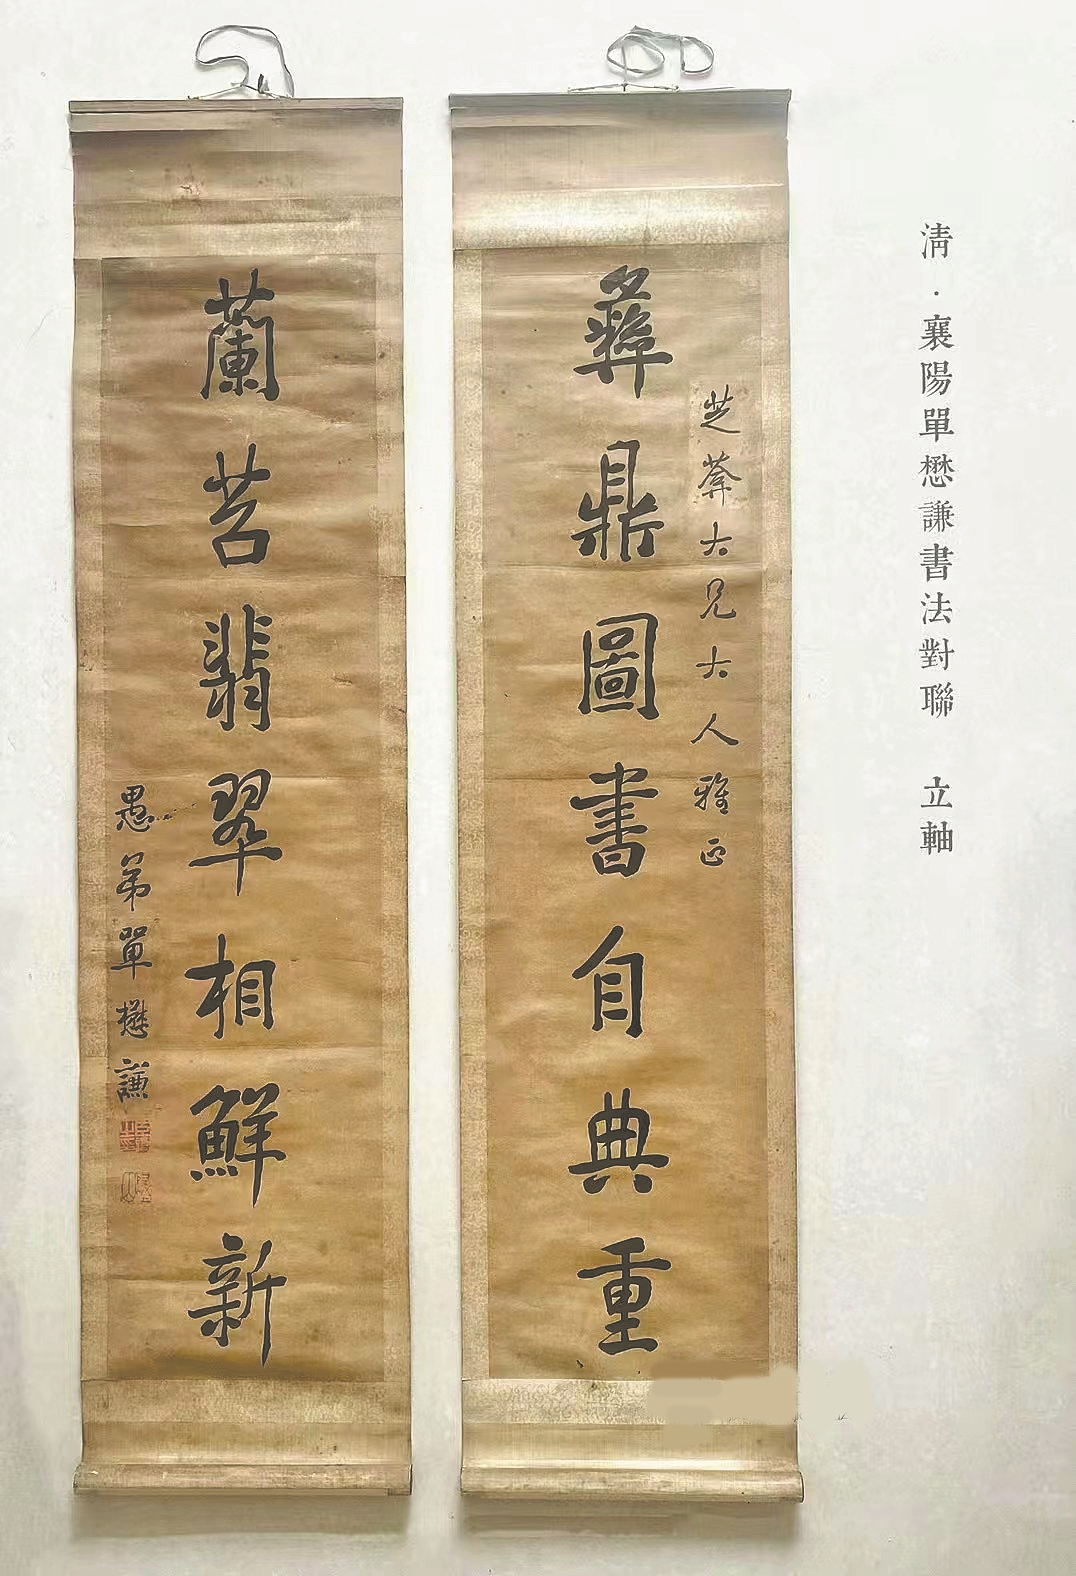 清·襄陽單懋謙書法對聯 立軸
芝菴大兄大人雅正
彝鼎圖書自典重
蘭苕翡翠相鮮新
愚弟單懋謙